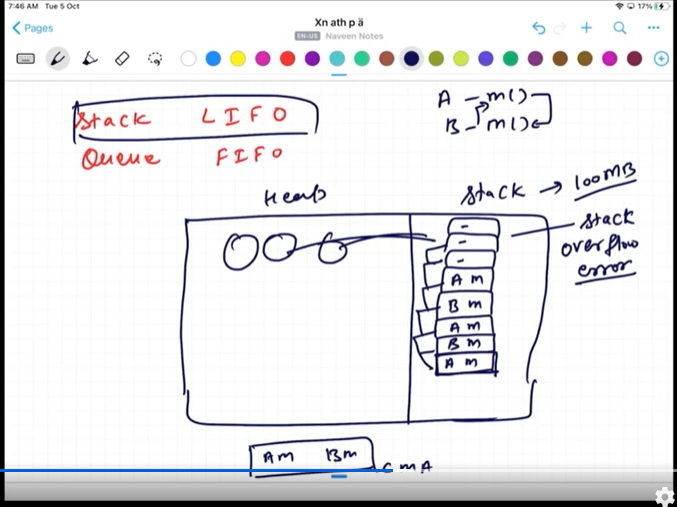 7:46 AM Tue 5 Oct
17%
Pages
Xn ath p ä
EN-US Naveen Notes
Stack LIFO
Queue FIFO
A - m()
B - m()
Heap
Stack → 100MB
- Stack
overflow
error
-
-
-
A m
B m
A m
B m
A m
Am Bm
C m A